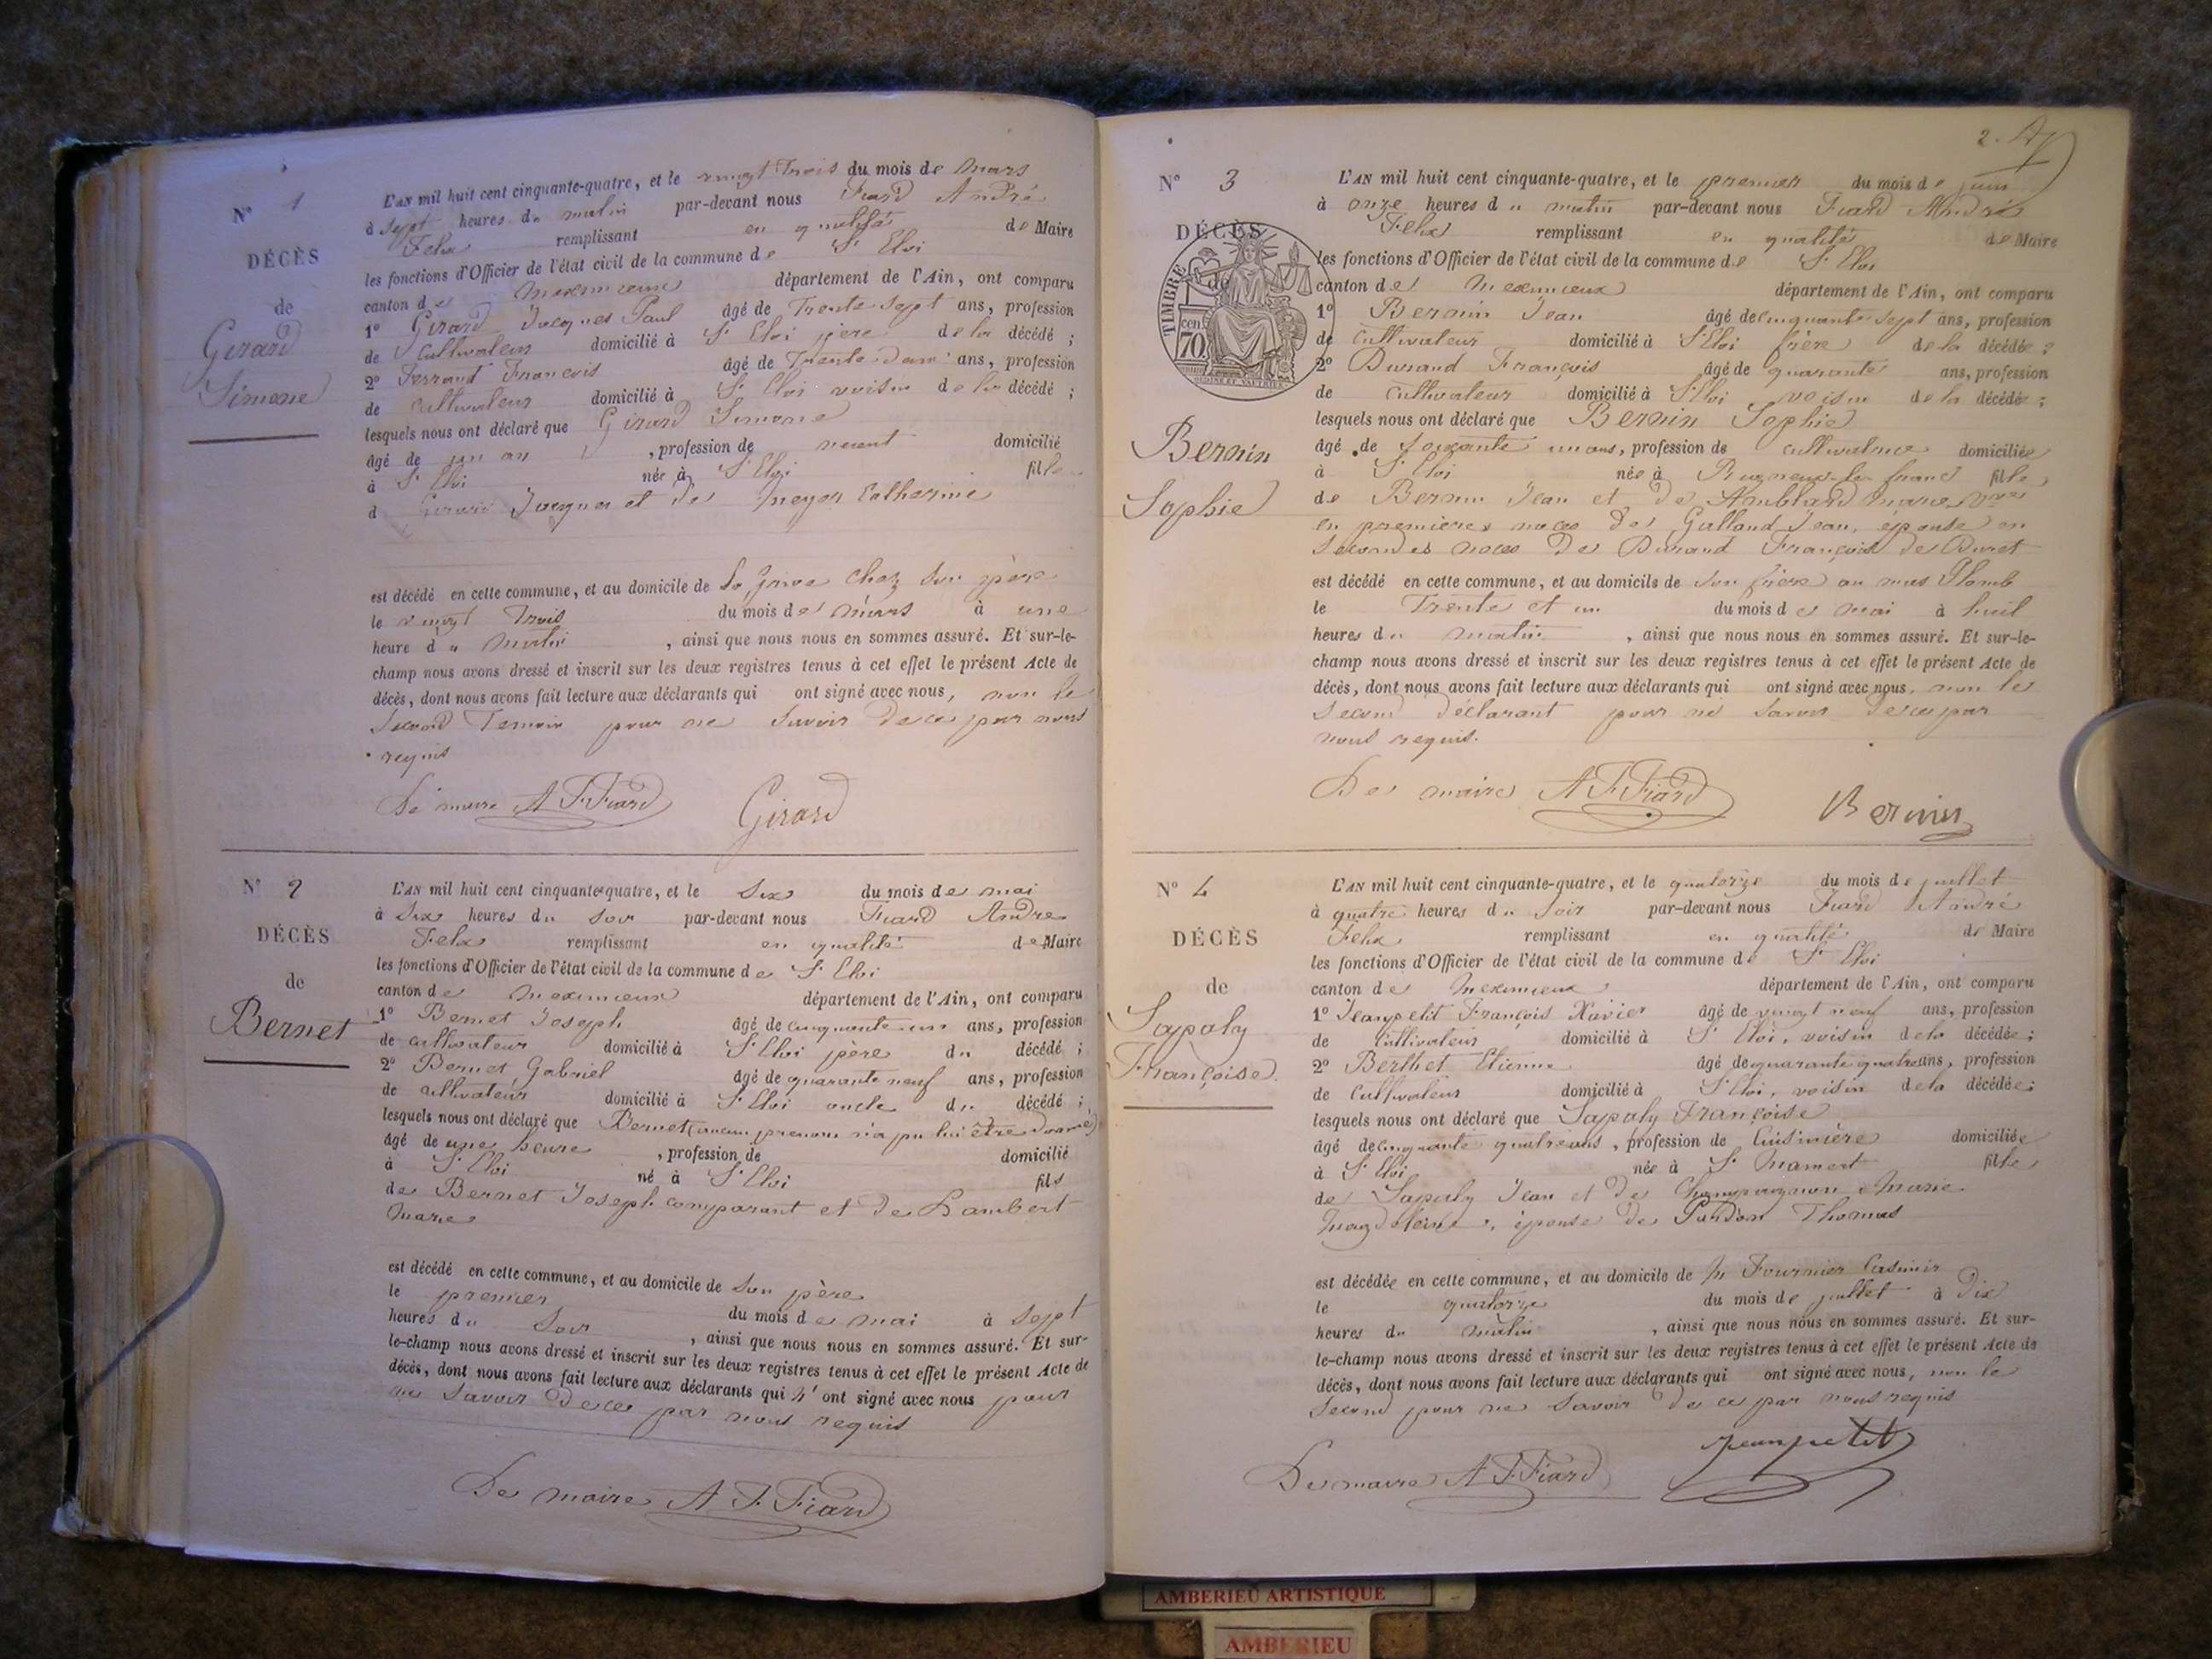 N° 1
DÉCÈS
de
Girard
Simone
L'AN mil huit cent cinquante-quatre, et le vingt trois du mois de mars
à sept heures du matin par-devant nous Fiard André
Felix remplissant en qualité de Maire
les fonctions d'Officier de l'état civil de la commune de St Eloi
canton de Meximieux département de l'Ain, ont comparu
1° Girard Jacques Paul âgé de Trente sept ans, profession
de Cultivateur domicilié à St Eloi père de la décédé ;
2° Ferrand François âgé de Trente deux ans, profession
de cultivateur domicilié à St Eloi voisin de la décédé ;
lesquels nous ont déclaré que Girard Simone
âgé de un an , profession de domicilié
à St Eloi née à St Eloi fille
d Girard Jacques et de Meyer Catherine
est décédé en cette commune, et au domicile de chez son père
le vingt trois du mois de mars à une
heure du matin , ainsi que nous nous en sommes assuré. Et sur-le-
champ nous avons dressé et inscrit sur les deux registres tenus à cet effet le présent Acte de
décès, dont nous avons fait lecture aux déclarants qui ont signé avec nous, non le
second Temoin pour ne savoir de ce par nous
requis
Le maire A F Fiard Girard
N° 2
DÉCÈS
de
Bernet
L'AN mil huit cent cinquante-quatre, et le Six du mois de mai
à Six heures du soir par-devant nous Fiard André
Felix remplissant en qualité de Maire
les fonctions d'Officier de l'état civil de la commune de St Eloi
canton de Meximieux département de l'Ain, ont comparu
1° Bernet Joseph âgé de cinquante un ans, profession
de cultivateur domicilié à St Eloi père du décédé ;
2° Bernet Gabriel âgé de quarante neuf ans, profession
de cultivateur domicilié à St Eloi oncle du décédé ;
lesquels nous ont déclaré que Bernet (aucun prenom n'a pu lui être donné)
âgé de une heure , profession de domicilié
à St Eloi né à St Eloi fils
de Bernet Joseph comparant et de Lambert
Marie
est décédé en cette commune, et au domicile de son père
le premier du mois de mai à sept
heures du soir , ainsi que nous nous en sommes assuré. Et sur-
le-champ nous avons dressé et inscrit sur les deux registres tenus à cet effet le présent Acte de
décès, dont nous avons fait lecture aux déclarants qui n'ont signé avec nous pour
ne savoir de ce par nous requis
Le maire A F Fiard
2.
N° 3
DÉCÈS
de
TIMBRE
70 cen
Bernin
Sophie
L'AN mil huit cent cinquante-quatre, et le premier du mois de juin
à onze heures du matin par-devant nous Fiard André
Felix remplissant en qualité de Maire
les fonctions d'Officier de l'état civil de la commune de St Eloi
canton de Meximieux département de l'Ain, ont comparu
1° Bernin Jean âgé de cinquante-sept ans, profession
de cultivateur domicilié à St Eloi frère de la décédée ;
2° Durand François âgé de quarante ans, profession
de cultivateur domicilié à St Eloi voisin de la décédée ;
lesquels nous ont déclaré que Bernin Sophie
âgé de soixante un ans, profession de cultivatrice domiciliée
à St Eloi née à fille
de Bernin Jean et de Amblard Marie, Vve
en premieres noces de Galland Jean, épouse en
secondes noces de Durand François de Buret
est décédé en cette commune, et au domicile de son frère au mas Plomb
le Trente et un du mois de mai à huit
heures du matin , ainsi que nous nous en sommes assuré. Et sur-le-
champ nous avons dressé et inscrit sur les deux registres tenus à cet effet le présent Acte de
décès, dont nous avons fait lecture aux déclarants qui ont signé avec nous, non le
second déclarant pour ne savoir de ce par
nous requis.
Le maire A F Fiard Bernin
N° 4
DÉCÈS
de
Sapaly
Françoise
L'AN mil huit cent cinquante-quatre, et le quatorze du mois de juillet
à quatre heures du soir par-devant nous Fiard André
Felix remplissant en qualité de Maire
les fonctions d'Officier de l'état civil de la commune de St Eloi
canton de Meximieux département de l'Ain, ont comparu
1° Jeanpetit François Xavier âgé de vingt neuf ans, profession
de cultivateur domicilié à St Eloi, voisin de la décédée ;
2° Berthet Etienne âgé de quarante quatre ans, profession
de cultivateur domicilié à St Eloi, voisin de la décédée ;
lesquels nous ont déclaré que Sapaly Françoise
âgé de cinquante quatre ans, profession de Cuisinière domiciliée
à St Eloi née à St Mamert fille
de Sapaly Jean et de Marie
Magdeleine, épouse de Pardon Thomas
est décédée en cette commune, et au domicile de Mr Fournier Casimir
le quatorze du mois de juillet à dix
heures du matin , ainsi que nous nous en sommes assuré. Et sur-
le-champ nous avons dressé et inscrit sur les deux registres tenus à cet effet le présent Acte de
décès, dont nous avons fait lecture aux déclarants qui ont signé avec nous, non le
second pour ne savoir de ce par nous requis
Le maire A F Fiard Jeanpetit
AMBERIEU ARTISTIQUE
AMBERIEU